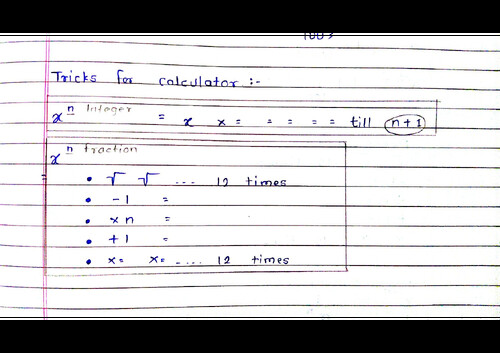 Tricks for calculator :-
x^n Integer = x x = = = = = till n+1
x^n fraction
= • √ √ .... 12 times
• -1 =
• xn =
• +1 =
• x= x= ..... 12 times